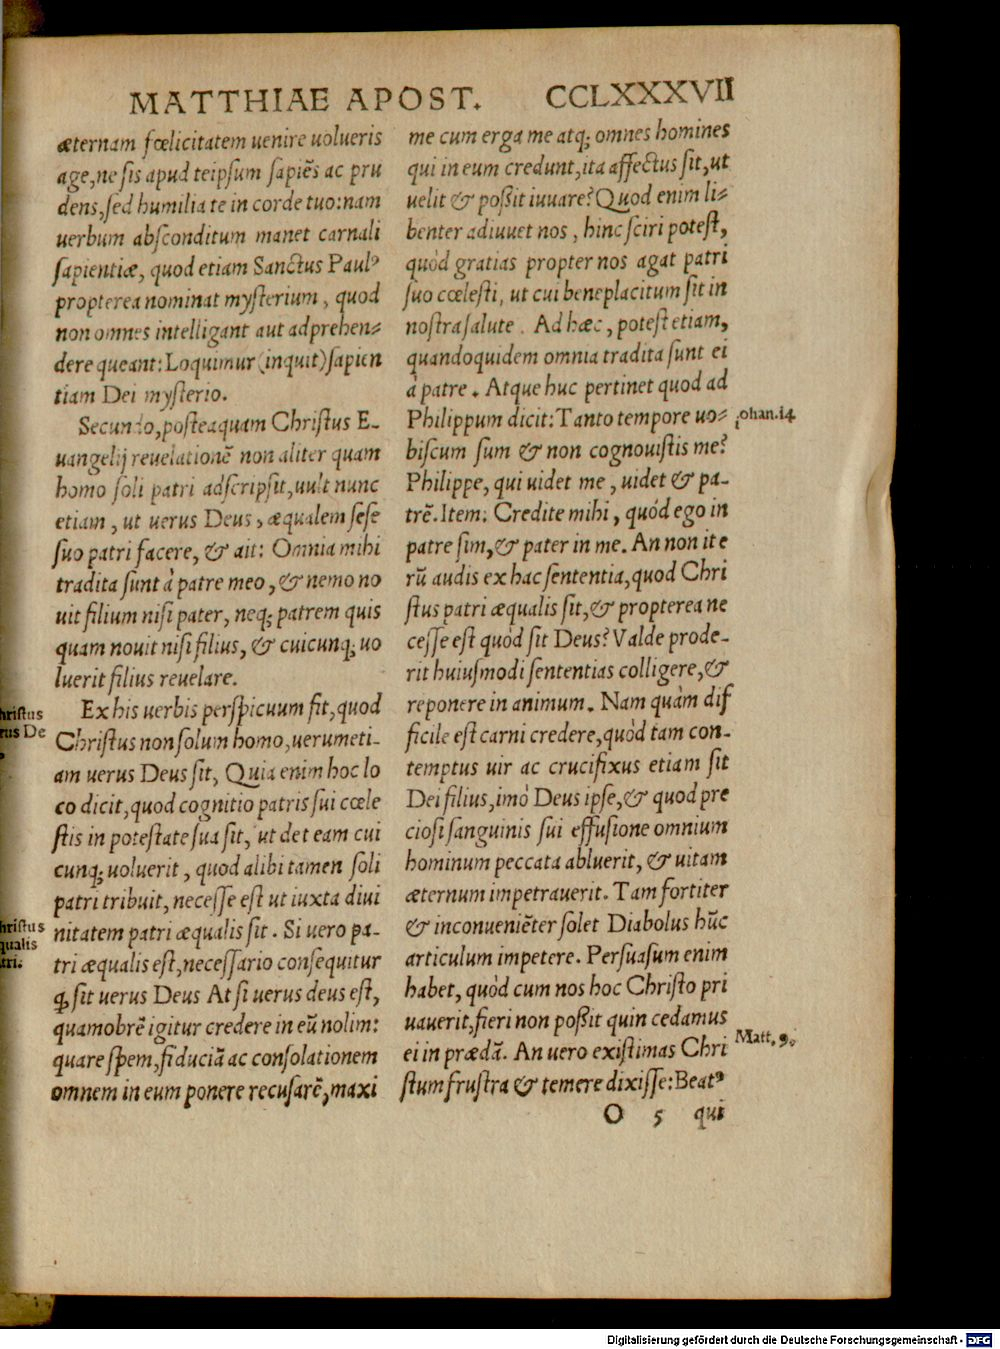 MATTHIAE APOST. CCLXXXVII
æternam fœlicitatem uenire uolueris
age,ne ſis apud teipſum ſapiẽs ac pru
dens,ſed humilia te in corde tuo:nam
uerbum abſconditum manet carnali
ſapientiæ, quod etiam Sanctus Paulꝰ
propterea nominat myſterium, quod
non omnes intelligant aut adprehen⸗
dere queant: Loquimur (inquit) ſapien
tiam Dei myſterio.
Secundo,poſteaquam Chriſtus E-
uangelij reuelationẽ non aliter quam
homo ſoli patri adſcripſit,uult nunc
etiam, ut uerus Deus, æqualem ſeſe
ſuo patri facere, & ait: Omnia mihi
tradita ſunt à patre meo, & nemo no
uit filium niſi pater, neq; patrem quis
quam nouit niſi filius, & cuicunq; uo
luerit filius reuelare.
Ex his uerbis perſpicuum fit,quod
Chriſtus non ſolum homo,uerumeti-
am uerus Deus ſit, Quia enim hoc lo
co dicit,quod cognitio patris ſui cœle
ſtis in poteſtate ſua ſit, ut det eam cui
cunq; uoluerit, quod alibi tamen ſoli
patri tribuit, neceſſe eſt ut iuxta diui
nitatem patri æqualis ſit. Si uero pa-
tri æqualis eſt,neceſſario conſequitur
ꝙ ſit uerus Deus At ſi uerus deus eſt,
quamobrẽ igitur credere in eũ nolim:
quare ſpem,fiduciã ac conſolationem
omnem in eum ponere recuſarẽ,maxi
hriſtus
rus De
hriſtus
qualis
tri.
me cum erga me atq; omnes homines
qui in eum credunt,ita affectus ſit,ut
uelit & poßit iuuare? Quod enim li⸗
benter adiuuet nos, hinc ſciri poteſt,
quòd gratias propter nos agat patri
ſuo cœleſti, ut cui beneplacitum ſit in
noſtra ſalute. Ad hæc, poteſt etiam,
quandoquidem omnia tradita ſunt ei
à patre. Atque huc pertinet quod ad
Philippum dicit: Tanto tempore uo⸗
biſcum ſum & non cognouiſtis me?
Philippe, qui uidet me, uidet & pa-
trẽ.Item: Credite mihi, quód ego in
patre ſim,& pater in me. An non ite
rũ audis ex hac ſententia,quod Chri
ſtus patri æqualis ſit,& propterea ne
ceſſe eſt quòd ſit Deus? Valde prode-
rit huiuſmodi ſententias colligere,&
reponere in animum. Nam quàm dif
ficile eſt carni credere,quòd tam con-
temptus uir ac crucifixus etiam ſit
Dei filius,imò Deus ipſe,& quod pre
cioſi ſanguinis ſui effuſione omnium
hominum peccata abluerit, & uitam
æternum impetrauerit. Tam fortiter
& inconueniẽter ſolet Diabolus hũc
articulum impetere. Perſuaſum enim
habet, quòd cum nos hoc Chriſto pri
uauerit,fieri non poßit quin cedamus
ei in prædã. An uero exiſtimas Chri
ſtum fruſtra & temere dixiſſe:Beatꝰ
ohan.14
Matt.9.
O 5 qui
Digitalisierung gefördert durch die Deutsche Forschungsgemeinschaft - DFG